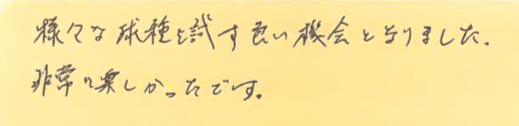 様々な球種を試す良い機会となりました.
非常に楽しかったです。